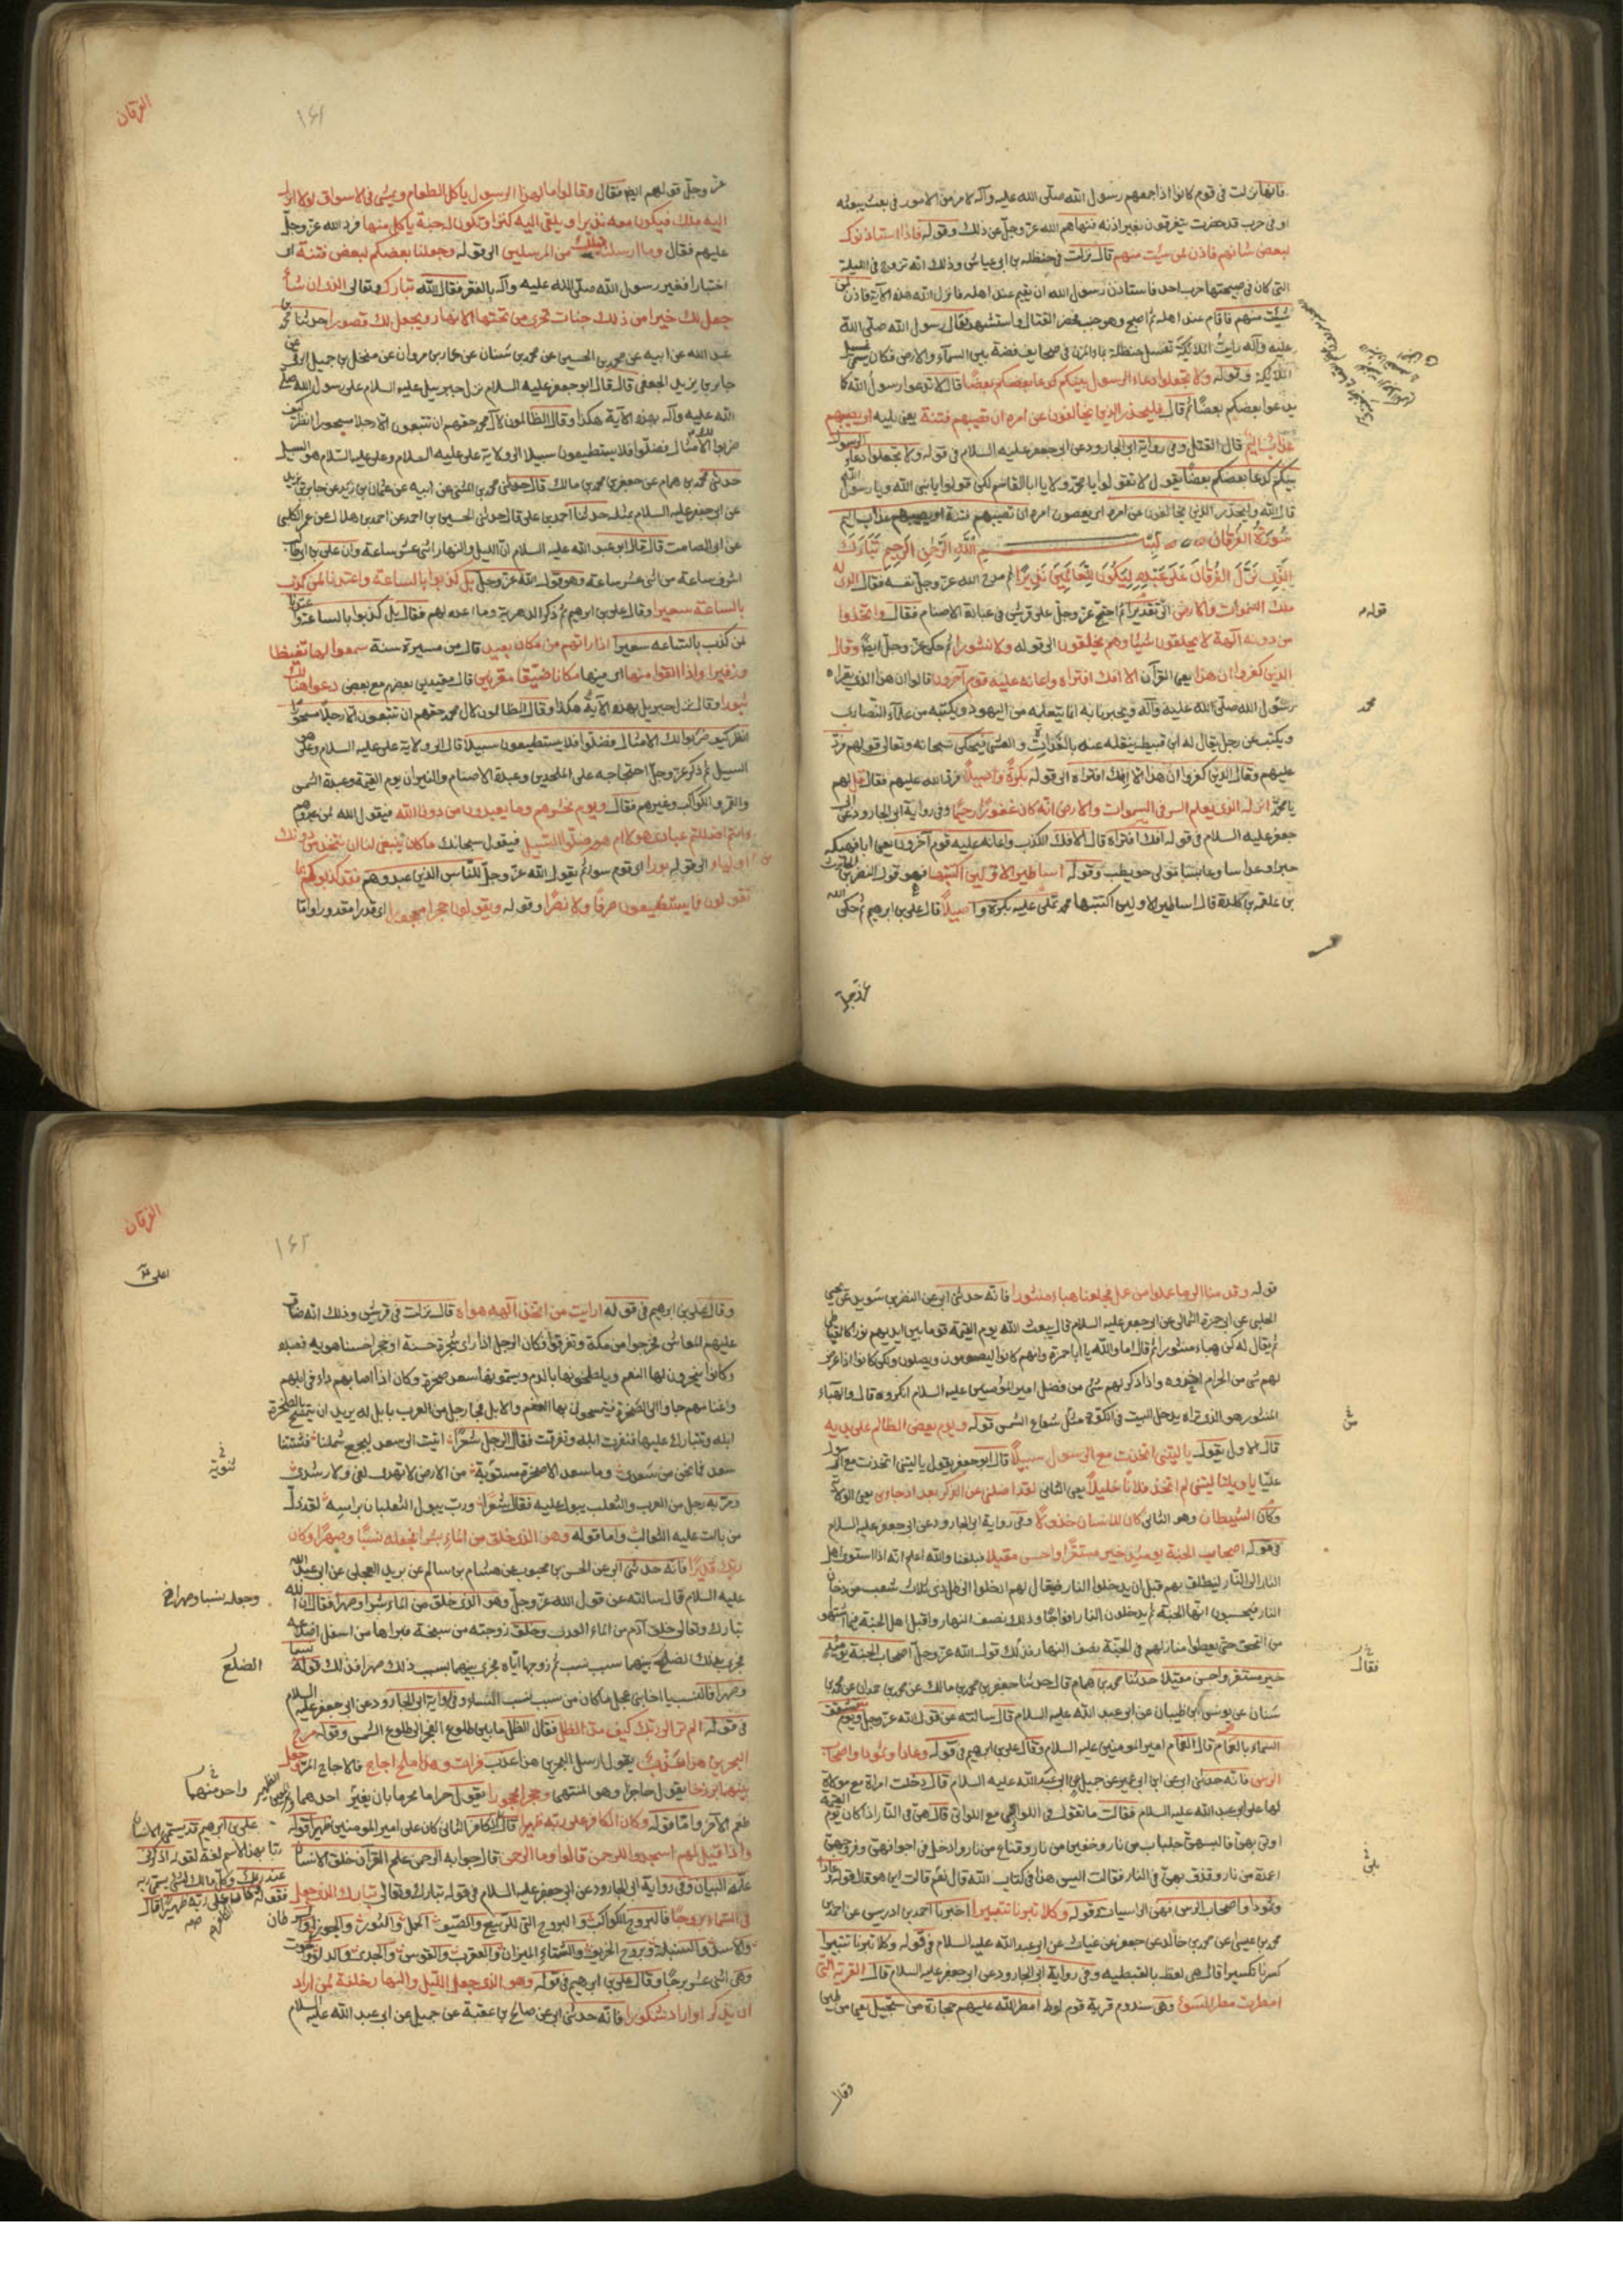 فانها نزلت في قوم كانوا اذا جمعهم رسول الله صلى الله عليه وآله لامر من الامور في بعث يبعثه
او في حرب قد حضرت يتفرقون بغير اذنه فنهاهم الله عز وجل عن ذلك وقوله فاذا استاذنوك
لبعض شانهم فاذن لمن شئت منهم قال نزلت في حنظلة بن ابي عياش وذلك انه تزوج في الليلة
التي كان في صبيحتها حرب احد فاستاذن رسول الله ان يقيم عند اهله فانزل الله هذه الآية فاذن لمن
شئت منهم فاقام عند اهله ثم اصبح وهو جنب فحضر القتال واستشهد فقال رسول الله صلى الله
عليه وآله رايت الملائكة تغسل حنظلة بماء المزن في صحايف فضة بين السماء والارض فكان يسمى غسيل
الملائكة وقوله ولا تجعلوا دعاء الرسول بينكم كدعاء بعضكم بعضا قال لا تدعوا رسول الله كما
يدعوا بعضكم بعضا ثم قال فليحذر الذين يخالفون عن امره ان تصيبهم فتنة يعني بلية او يصيبهم
عذاب اليم قال القتل وفي رواية ابي الجارود عن ابي جعفر عليه السلام في قوله ولا تجعلوا دعاء الرسول
بينكم كدعاء بعضكم بعضا يقول لا تقولوا يا محمد ولا يا ابا القاسم لكن قولوا يا نبي الله ويا رسول الله
قال الله فليحذر الذين يخالفون عن امره اي يعصون امره ان تصيبهم فتنة او يصيبهم عذاب اليم
سورة الفرقان بسم الله الرحمن الرحيم تبارك
الذي نزل الفرقان على عبده ليكون للعالمين نذيرا ثم مدح الله عز وجل نفسه فقال الذي له
ملك السموات والارض الى تقديرا ثم احتج عز وجل على قريش في عبادة الاصنام فقال واتخذوا
من دونه آلهة لا يخلقون شيئا وهم يخلقون الى قوله ولا نشورا ثم حكى عز وجل ايضا وقال
الذين كفروا ان هذا يعني القرآن الا افك افتراه واعانه عليه قوم آخرون قالوا ان هذا الذي يقراه
رسول الله صلى الله عليه وآله ويخبرنا به انما يتعلمه من اليهود ويكتبه من علماء النصارى
ويكتب عن رجل يقال له ابن قبيطة ينقله عنه بالغداة والعشي فحكى سبحانه وتعالى قولهم فرد
عليهم وقال الذين كفروا ان هذا الا افك افتراه الى قوله بكرة واصيلا فرد الله عليهم فقال قل لهم
يا محمد انزله الذي يعلم السر في السموات والارض انه كان غفورا رحيما وفي رواية ابي الجارود عن ابي
جعفر عليه السلام في قوله افك افتراه قال الافك الكذب واعانه عليه قوم آخرون يعني ابا فهيكه
حبرا وعداسا وعابسا مولى حويطب وقوله اساطير الاولين اكتتبها فهو قول النضر بن الحارث
بن علقمة بن كلدة قال اساطير الاولين اكتتبها محمد تملى عليه بكرة واصيلا قال علي بن ابرهيم ثم حكى الله
عز وجل
قوله
محمد
الفرقان
١٦١
عز وجل قولهم ايضا فقال وقالوا مال هذا الرسول ياكل الطعام ويمشي في الاسواق لولا انزل
اليه ملك فيكون معه نذيرا او يلقى اليه كنز او تكون له جنة ياكل منها فرد الله عز وجل
عليهم فقال وما ارسلنا قبلك من المرسلين الى قوله وجعلنا بعضكم لبعض فتنة اي
اختبارا فعير رسول الله صلى الله عليه وآله بالفقر فقال الله تبارك وتعالى الذي ان شاء
جعل لك خيرا من ذلك جنات تجري من تحتها الانهار ويجعل لك قصورا حدثنا محمد بن
عبد الله عن ابيه عن محمد بن الحسين عن محمد بن سنان عن عمار بن مروان عن منخل بن جميل الرقي عن
جابر بن يزيد الجعفي قال قال ابو جعفر عليه السلام نزل جبريل عليه السلام على رسول الله صلى
الله عليه وآله بهذه الآية هكذا وقال الظالمون لآل محمد حقهم ان تتبعون الا رجلا مسحورا انظر كيف
ضربوا لك الامثال فضلوا فلا يستطيعون سبيلا الى ولاية علي عليه السلام وعلي عليه السلام هو السبيل
حدثني محمد بن همام عن جعفر بن محمد بن مالك قال حدثني محمد بن المثنى عن ابيه عن عثمان بن زيد عن جابر بن يزيد
عن ابي جعفر عليه السلام مثله حدثنا احمد بن علي قال حدثني الحسين بن احمد عن احمد بن هلال عن عمر الكلبي
عن ابي الصامت قال قال ابو عبد الله عليه السلام ان الليل والنهار اثنى عشر ساعة وان علي بن ابي طالب
اشرف ساعة من اثنى عشر ساعة وهو قول الله عز وجل بل كذبوا بالساعة واعتدنا لمن كذب
بالساعة سعيرا وقال علي بن ابرهيم ثم ذكر الدهرية وما اعده لهم فقال بل كذبوا بالساعة واعتدنا
لمن كذب بالساعة سعيرا اذا راتهم من مكان بعيد قال من مسيرة سنة سمعوا لها تغيظا
وزفيرا واذا القوا منها اي فيها مكانا ضيقا مقرنين قال مقيدين بعضهم مع بعض دعوا هنالك
ثبورا وقال نزل جبريل بهذه الآية هكذا وقال الظالمون لآل محمد حقهم ان تتبعون الا رجلا مسحورا
انظر كيف ضربوا لك الامثال فضلوا فلا يستطيعون سبيلا قال الى ولاية علي عليه السلام وعلي هو
السبيل ثم ذكر عز وجل احتجاجه على الملحدين وعبدة الاصنام والنيران يوم القيمة وعبدة الشمس
والقمر والكواكب وغيرهم فقال ويوم نحشرهم وما يعبدون من دون الله فيقول الله لمن عبدوهم
ءانتم اضللتم عبادي هؤلاء ام هم ضلوا السبيل فيقول سبحانك ما كان ينبغي لنا ان نتخذ من دونك
من اولياء الى قوله بورا اي قوم سوء ثم يقول الله عز وجل للناس الذين عبدوهم فقد كذبوكم بما
تقولون فما يستطيعون صرفا ولا نصرا وقوله ويقولون حجرا محجورا اي قدرا مقدورا واما
قوله وقدمنا الى ما عملوا من عمل فجعلناه هباء منثورا فانه حدثني ابي عن النضر بن سويد عن يحيى
الحلبي عن ابي حمزة الثمالي عن ابي جعفر عليه السلام قال يبعث الله يوم القيمة قوما بين ايديهم نور كالقباطي
ثم يقال له كن هباء منثورا ثم قال اما والله يا ابا حمزة وانهم كانوا ليصومون ويصلون ولكن كانوا اذا عرض
لهم شي من الحرام اخذوه واذا ذكر لهم شيء من فضل امير المؤمنين عليه السلام انكروه قال والهباء
المنثور هو الذي تراه يدخل البيت في الكوة مثل شعاع الشمس قوله ويوم يعض الظالم على يديه
قال الاول يقول يا ليتني اتخذت مع الرسول سبيلا قال ابو جعفر يقول يا ليتني اتخذت مع الرسول
عليا يا ويلتا ليتني لم اتخذ فلانا خليلا يعني الثاني لقد اضلني عن الذكر بعد اذ جاءني يعني الولاية
وكان الشيطان وهو الثاني كان للانسان خذولا وفي رواية ابي الجارود عن ابي جعفر عليه السلام
في قوله اصحاب الجنة يومئذ خير مستقرا واحسن مقيلا فبلغنا والله اعلم انه اذا استوى اهل
النار الى النار لينطلق بهم قبل ان يدخلوا النار فيقال لهم ادخلوا الى ظل ذي ثلاث شعب من دخان
النار فيحسبون انها الجنة ثم يدخلون النار افواجا وذلك نصف النهار واقبل اهل الجنة فيما اشتهوا
من التحف حتى يعطوا منازلهم في الجنة نصف النهار فذلك قول الله عز وجل اصحاب الجنة يومئذ
خير مستقرا واحسن مقيلا حدثنا محمد بن همام قال حدثنا جعفر بن محمد بن مالك عن محمد بن حمدان عن محمد بن
سنان عن يونس بن ظبيان عن ابي عبد الله عليه السلام قال سالته عن قول الله عز وجل ويوم تشقق
السماء بالغمام قال الغمام امير المؤمنين عليه السلام وقال علي بن ابرهيم في قوله وعادا وثمودا واصحاب
الرس فانه حدثني ابي عن ابن ابي عمير عن جميل عن ابي عبد الله عليه السلام قال دخلت امراة مع مولاة
لها على ابي عبد الله عليه السلام فقالت ما تقول في اللواتي مع اللواتي قال هن في النار اذا كان يوم القيمة
اوتي بهن فالبسهن جلباب من نار وخفين من نار وقناع من نار وادخل في اجوافهن وفروجهن
اعمدة من نار وقذف بهن في النار فقالت اليس هذا في كتاب الله قال نعم قالت اين هو قال قوله وعادا
وثمود واصحاب الرس فهن الرسيات وقوله وكلا تبرنا تتبيرا اخبرنا احمد بن ادريس عن احمد بن
محمد بن عيسى عن محمد بن خالد عن جعفر بن غياث عن ابي عبد الله عليه السلام في قوله وكلا تبرنا تتبيرا
كسرنا تكسيرا قال هي لفظة بالقبطيه وفي رواية ابي الجارود عن ابي جعفر عليه السلام قال القرية التي
امطرت مطر السوء وهي سدوم قرية قوم لوط امطر الله عليهم حجارة من سجيل يعني من طين
فقال
وقال
الفرقان
١٦٢
وقال علي بن ابرهيم في قوله ارايت من اتخذ آلهه هواه قال نزلت في قريش وذلك انه ضاق
عليهم المعاش فخرجوا من مكة وتفرقوا فكان الرجل اذا راى شجرة حسنة او حجرا حسنا هويه فعبده
وكانوا ينحرون لها النعم ويلطخونها بالدم ويسمونها سعد صخرة وكان اذا اصابهم داء في ابلهم
واغنامهم جاؤا الى الصخرة فيتمسحون بها الغنم والابل فجاء رجل من العرب بابل له يريد ان يتمسح بالصخرة
ابله وتتبارك عليها فنفرت ابله وتفرقت فقال الرجل شعرا اتيت الى سعد ليجمع شملنا فشتتنا
سعد فما نحن من سعد وما سعد الا صخرة مستوية من الارض لا تهدى لغي ولا رشد
ومر به رجل من العرب والثعلب يبول عليه فقال شعرا ورب يبول الثعلبان براسه لقد ذل
من بالت عليه الثعالب واما قوله وهو الذي خلق من الماء بشرا فجعله نسبا وصهرا وكان
ربك قديرا فانه حدثني ابي عن الحسن بن محبوب عن هشام بن سالم عن بريد العجلي عن ابي عبد الله
عليه السلام قال سالته عن قول الله عز وجل وهو الذي خلق من الماء بشرا وصهرا فقال ان الله
تبارك وتعالى خلق آدم من الماء العذب وخلق زوجته من سنخه فبراها من اسفل اضلاعه
فجرى بذلك الضلع بينهما سبب نسب ثم زوجها اياه فجرى بينهما بسبب ذلك صهرا فذلك قوله نسبا
وصهرا فالنسب يا اخا بني عجل ما كان من سبب نسب النساء وفي رواية ابي الجارود عن ابي جعفر عليه السلام
في قوله الم تر الى ربك كيف مد الظل فقال الظل ما بين طلوع الفجر الى طلوع الشمس وقوله مرج
البحرين هذا عذب يقول ارسل البحرين هذا عذب فرات وهذا ملح اجاج فالاجاج المر وجعل
بينهما برزخا يقول حاجزا وهو المنتهى وحجرا محجورا يقول حراما محرما بان يغير احدهما
طعم الآخر واما قوله وكان الكافر على ربه ظهيرا قال الكافر الثاني كان على امير المؤمنين ظهيرا قوله
واذا قيل لهم اسجدوا للرحمن قالوا وما الرحمن قال جوابه الرحمن علم القرآن خلق الانسان
علمه البيان وفي رواية ابي الجارود عن ابي جعفر عليه السلام في قوله تبارك وتعالى تبارك الذي جعل
في السماء بروجا فالبروج الكواكب والبروج التي للربيع والصيف الحمل والثور والجوزا والسرطان
والاسد والسنبلة وبروج الخريف والشتاء الميزان والعقرب والقوس والجدي والدلو والحوت
وهي اثنى عشر برجا وقال علي بن ابرهيم في قوله وهو الذي جعل الليل والنهار خلفة لمن اراد
ان يذكر او اراد شكورا فانه حدثني ابي عن صالح بن عقبة عن جميل عن ابي عبد الله عليه السلام
وجعله نسبا وصهرا
الضلع
واحد منهما
علي بن ابرهيم قد يسمى الانسان
ربا بهذا الاسم لغة لقوله اذكرني
عند ربك وكل مالك لشيء يسمى ربه